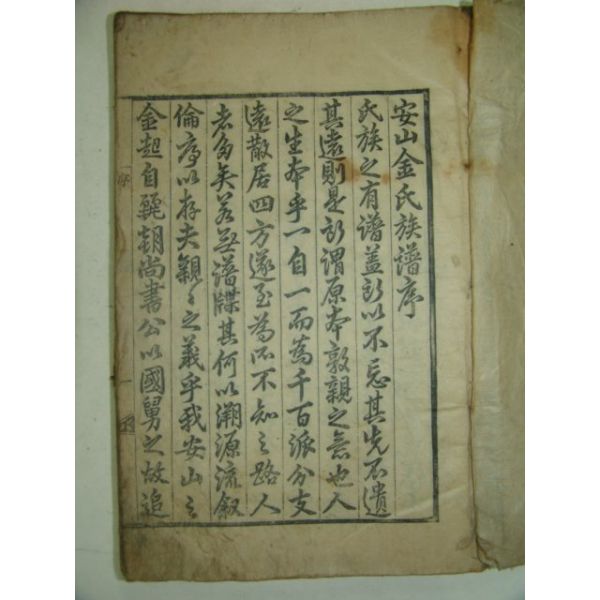 安山金氏族譜序
氏族之有譜盖所以不忘其先不遺
其遠則是所謂原本敦親之意也人
之生本乎一自一而為千百派分支
遠散居四方遂至為不知之路人
者多矣若無譜牒其何以溯源流叙
倫序以存夫親〻之義乎我安山之
金起自麗朝尚書公以國舅之故追
序
一